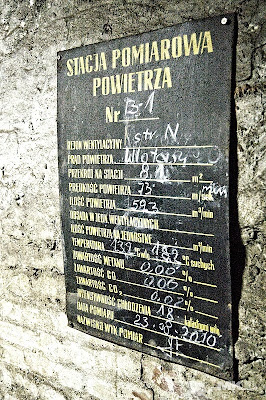 STACJA POMIAROWA
POWIETRZA
Nr B-1
REJON WENTYLACYJNY Istr. N
PRĄD POWIETRZA
PRZEKRÓJ NA STACJI 8.1 m²
PRĘDKOŚĆ POWIETRZA 73 m/sek
ILOŚĆ POWIETRZA 593 m³/min
OBSADA W REJ. WENTYLACYJNYM
ILOŚĆ POWIETRZA NA JEDNOSTKĘ m³/min
TEMPERATURA °C suchych
ZAWARTOŚĆ METANU 0,00 %
ZAWARTOŚĆ CO 0,00 %
ZAWARTOŚĆ CO₂ 0,02 %
INTENSYWNOŚĆ CHŁODZENIA 18
DATA POMIARU 23.09.2010
NAZWISKO WYK. POMIAR